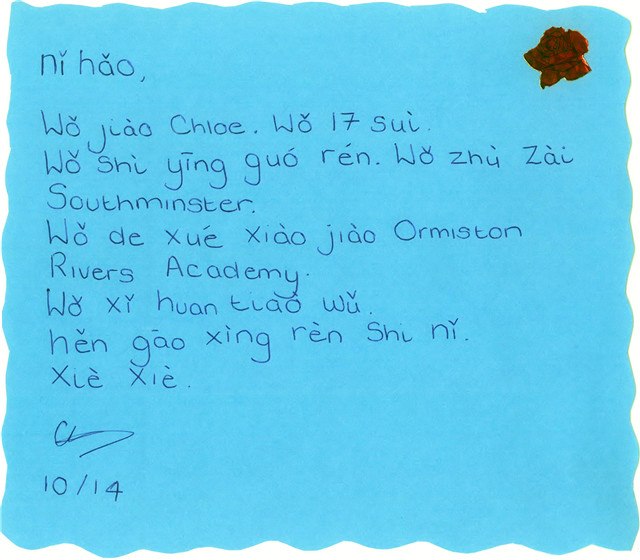 nǐ hǎo,
Wǒ jiào Chloe. Wǒ 17 suì.
Wǒ Shì yīng guó rén. Wǒ zhù Zài
Southminster.
Wǒ de xué xiào jiào Ormiston
Rivers Academy.
Wǒ xǐ huan tiào wǔ.
hěn gāo xìng rèn Shi nǐ.
Xiè Xiè.
10/14